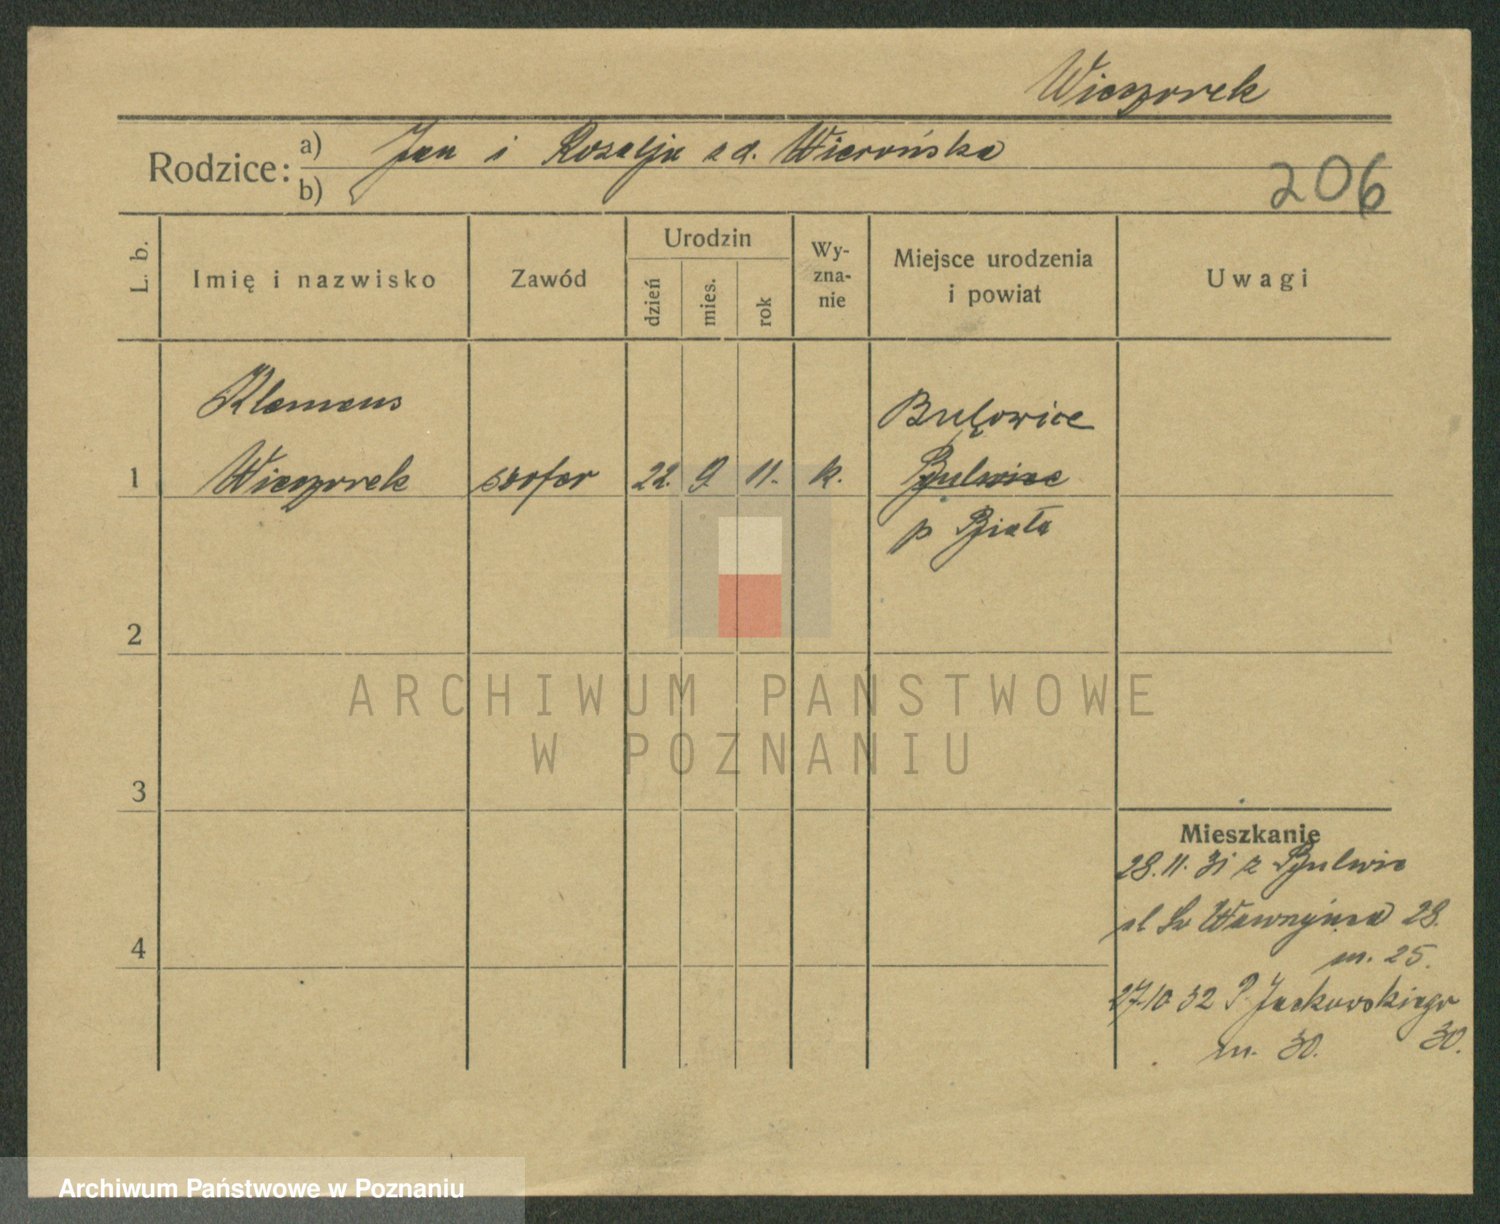 Wieczorek
Rodzice:
a) Jan i Rozalja z d. Wierońska
b)
206
L. b.
Imię i nazwisko
Zawód
Urodzin
dzień
mies.
rok
Wy-
zna-
nie
Miejsce urodzenia
i powiat
Uwagi
Klemens
Bulowice
1 Wieczorek szofer 22. 9. 11. k.
p Biała
2
3
4
ARCHIWUM PAŃSTWOWE
W POZNANIU
Mieszkanie
28.11.31 z Bulwic
Św Wawrzyńca 28.
m. 25.
27.10 32 P. Jackowskiego
m. 30. 30.
Archiwum Państwowe w Poznaniu